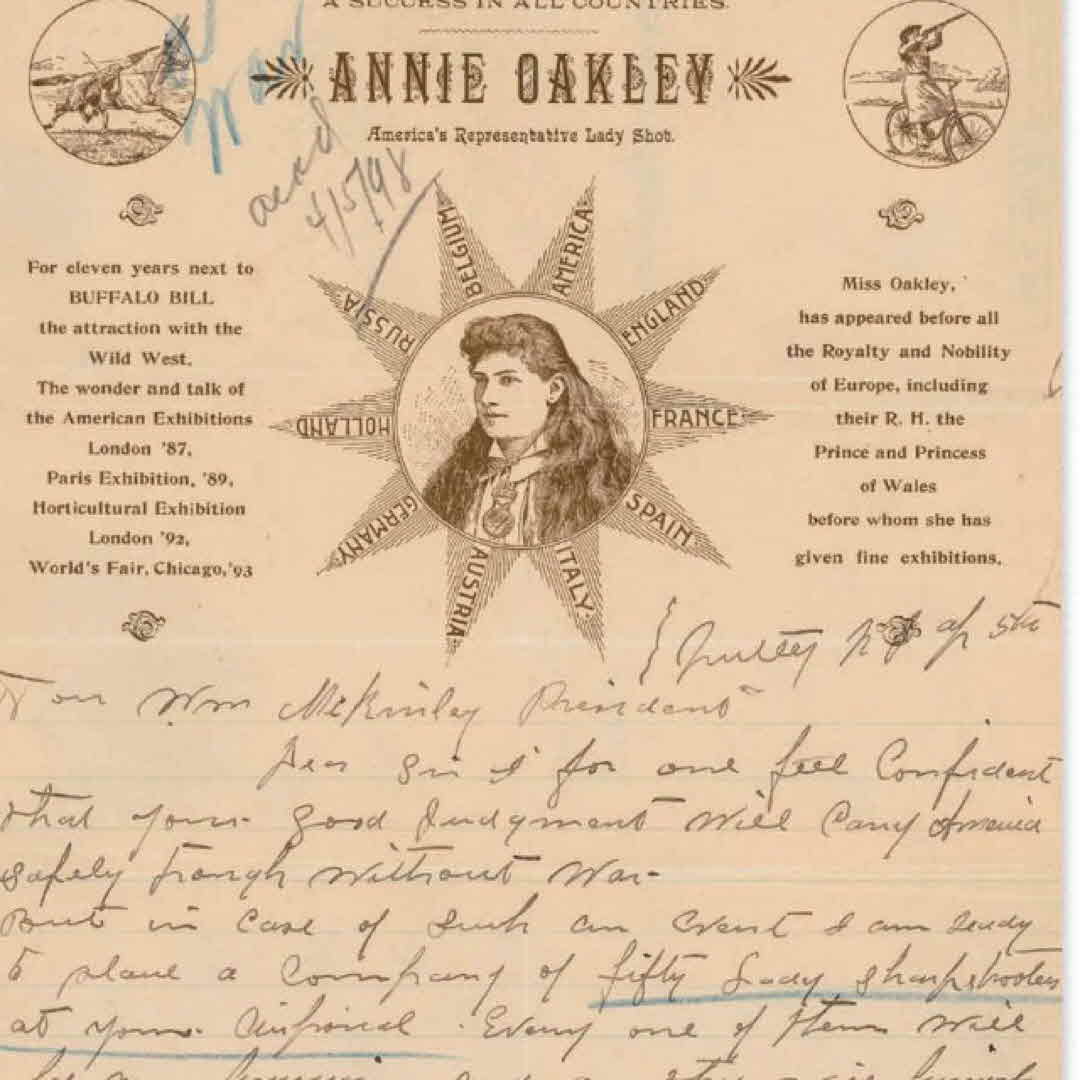 A SUCCESS IN ALL COUNTRIES.
ANNIE OAKLEY
America's Representative Lady Shot.
War
4/5/98
For eleven years next to
BUFFALO BILL
the attraction with the
Wild West.
The wonder and talk of
the American Exhibitions
London '87,
Paris Exhibition, '89,
Horticultural Exhibition
London '92,
World's Fair, Chicago,'93
BELGIUM
AMERICA
ENGLAND
FRANCE
SPAIN
ITALY
AUSTRIA
GERMANY
HOLLAND
RUSSIA
Miss Oakley,
has appeared before all
the Royalty and Nobility
of Europe, including
their R. H. the
Prince and Princess
of Wales
before whom she has
given fine exhibitions.
Nutley NJ Ap 5th
Hon Wm McKinley President
Dear Sir I for one feel Confident
that your good Judgment will Carry America
safely through without War-
But in Case of Such an Event I am ready
to place a Company of fifty Lady sharpshooters
at your disposal. Every one of them will
be